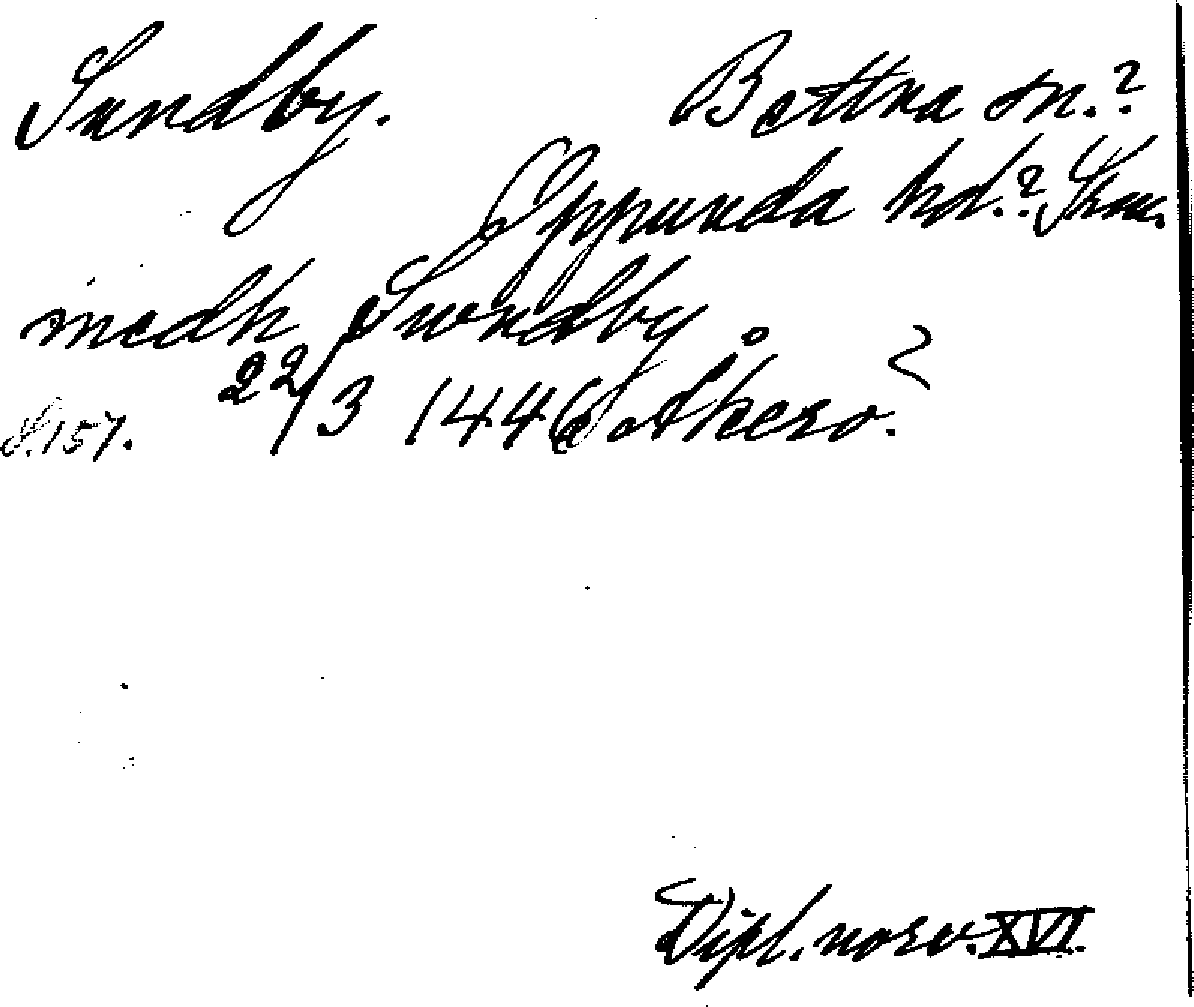 Sundby. Bettna sn.?
Oppunda hd.? Söm.
medh Swndby.
S. 157. 22/3 1446 Åkerö. ?
Dipl. norv. XVI.